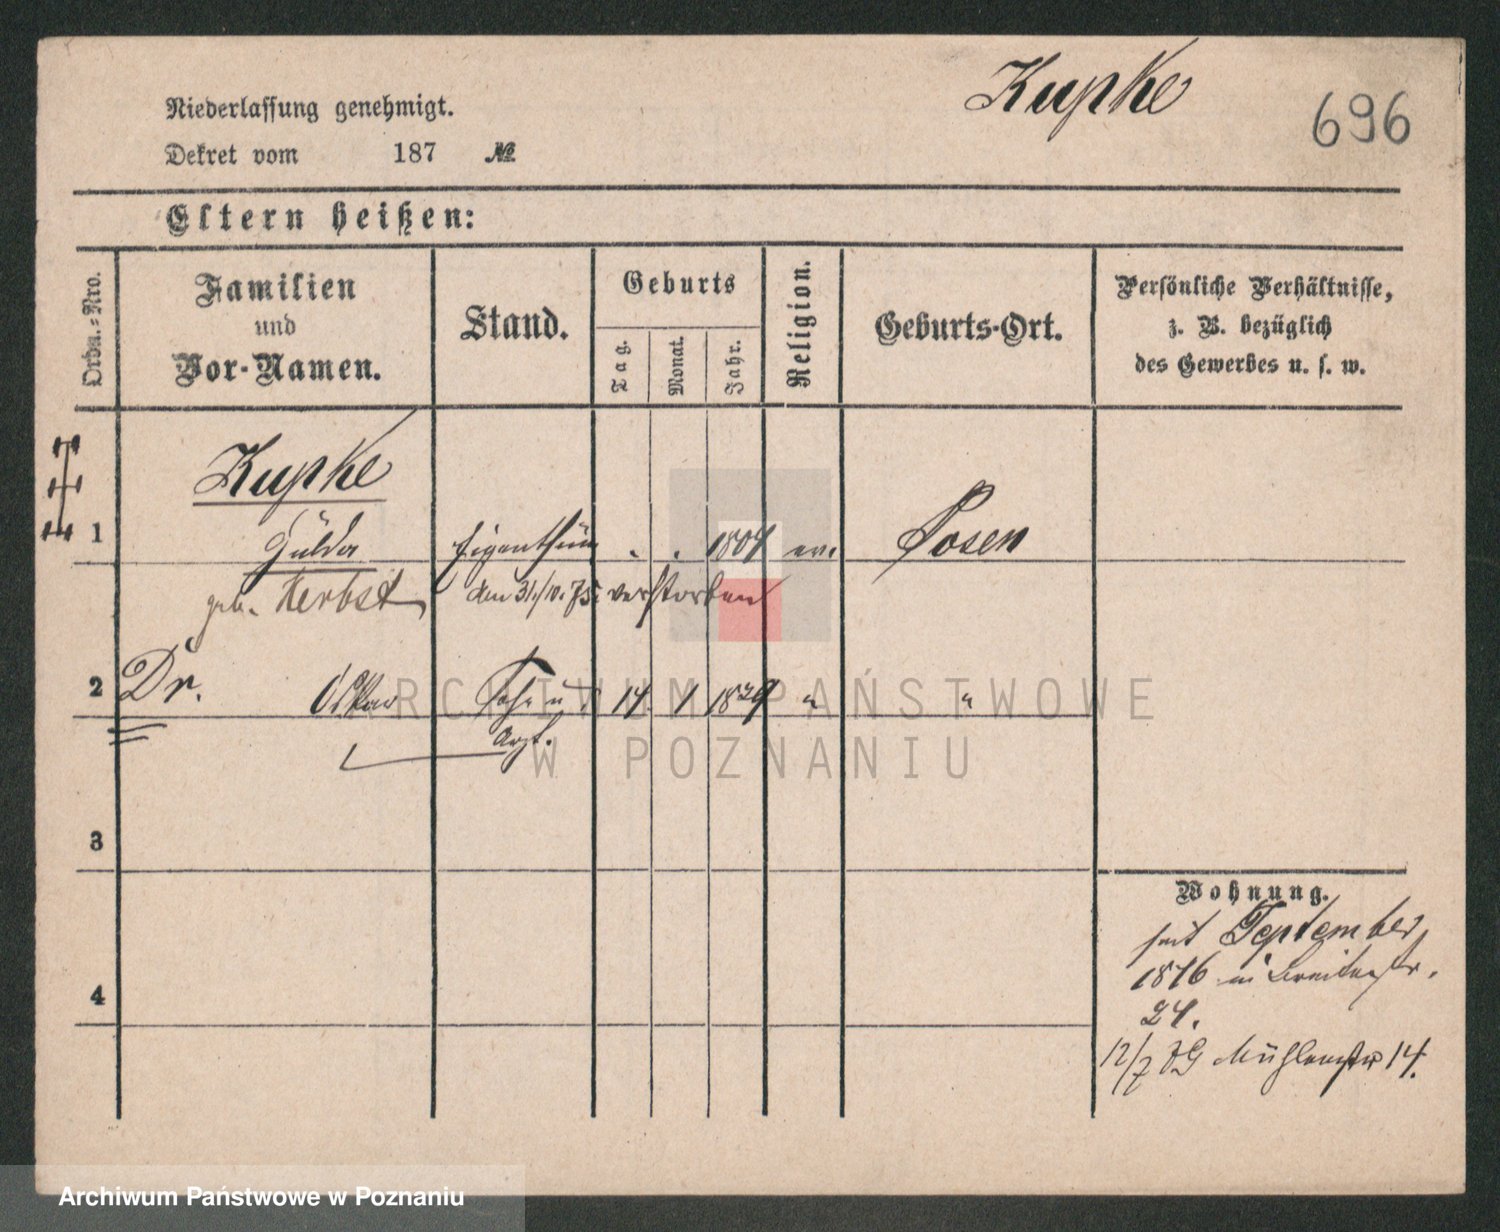 Kupke
696
Niederlassung genehmigt.
Dekret vom 187 №
Eltern heißen:
Ordn.-Nro.
Familien
und
Vor-Namen.
Stand.
Geburts
Tag.
Monat.
Jahr.
Religion.
Geburts-Ort.
Persönliche Verhältnisse,
z. B. bezüglich
des Gewerbes u. s. w.
Kupke
1 Eigenthüm . . 1804 ev. Posen
geb. Herbst den 31./10. 75. verstorben
2 Dr. Oskar Sohn u. 14. 1 1839 " "
Arzt.
3
Wohnung.
seit September
1876 in Breitestr.
24.
4
12/7 Mühlenstr 14.
ARCHIWUM PAŃSTWOWE
W POZNANIU
Archiwum Państwowe w Poznaniu